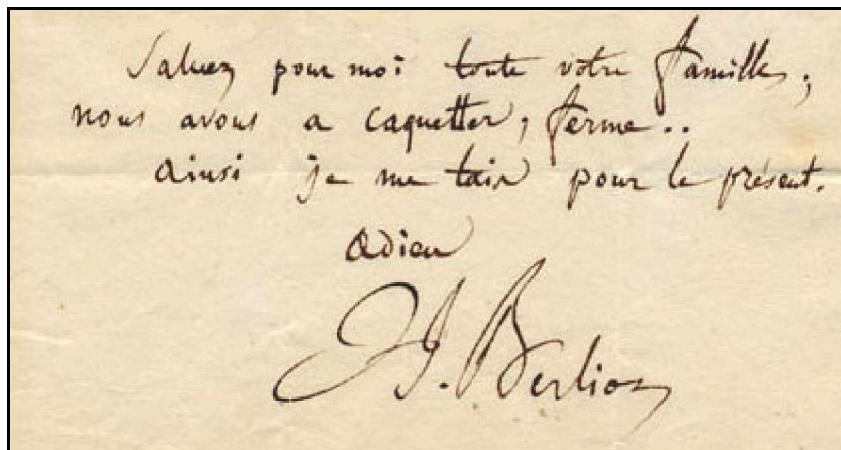 Saluez pour moi toute votre famille;
nous avons a caquetter, ferme..
ainsi je me tais pour le présent.
adieu
H. Berlioz